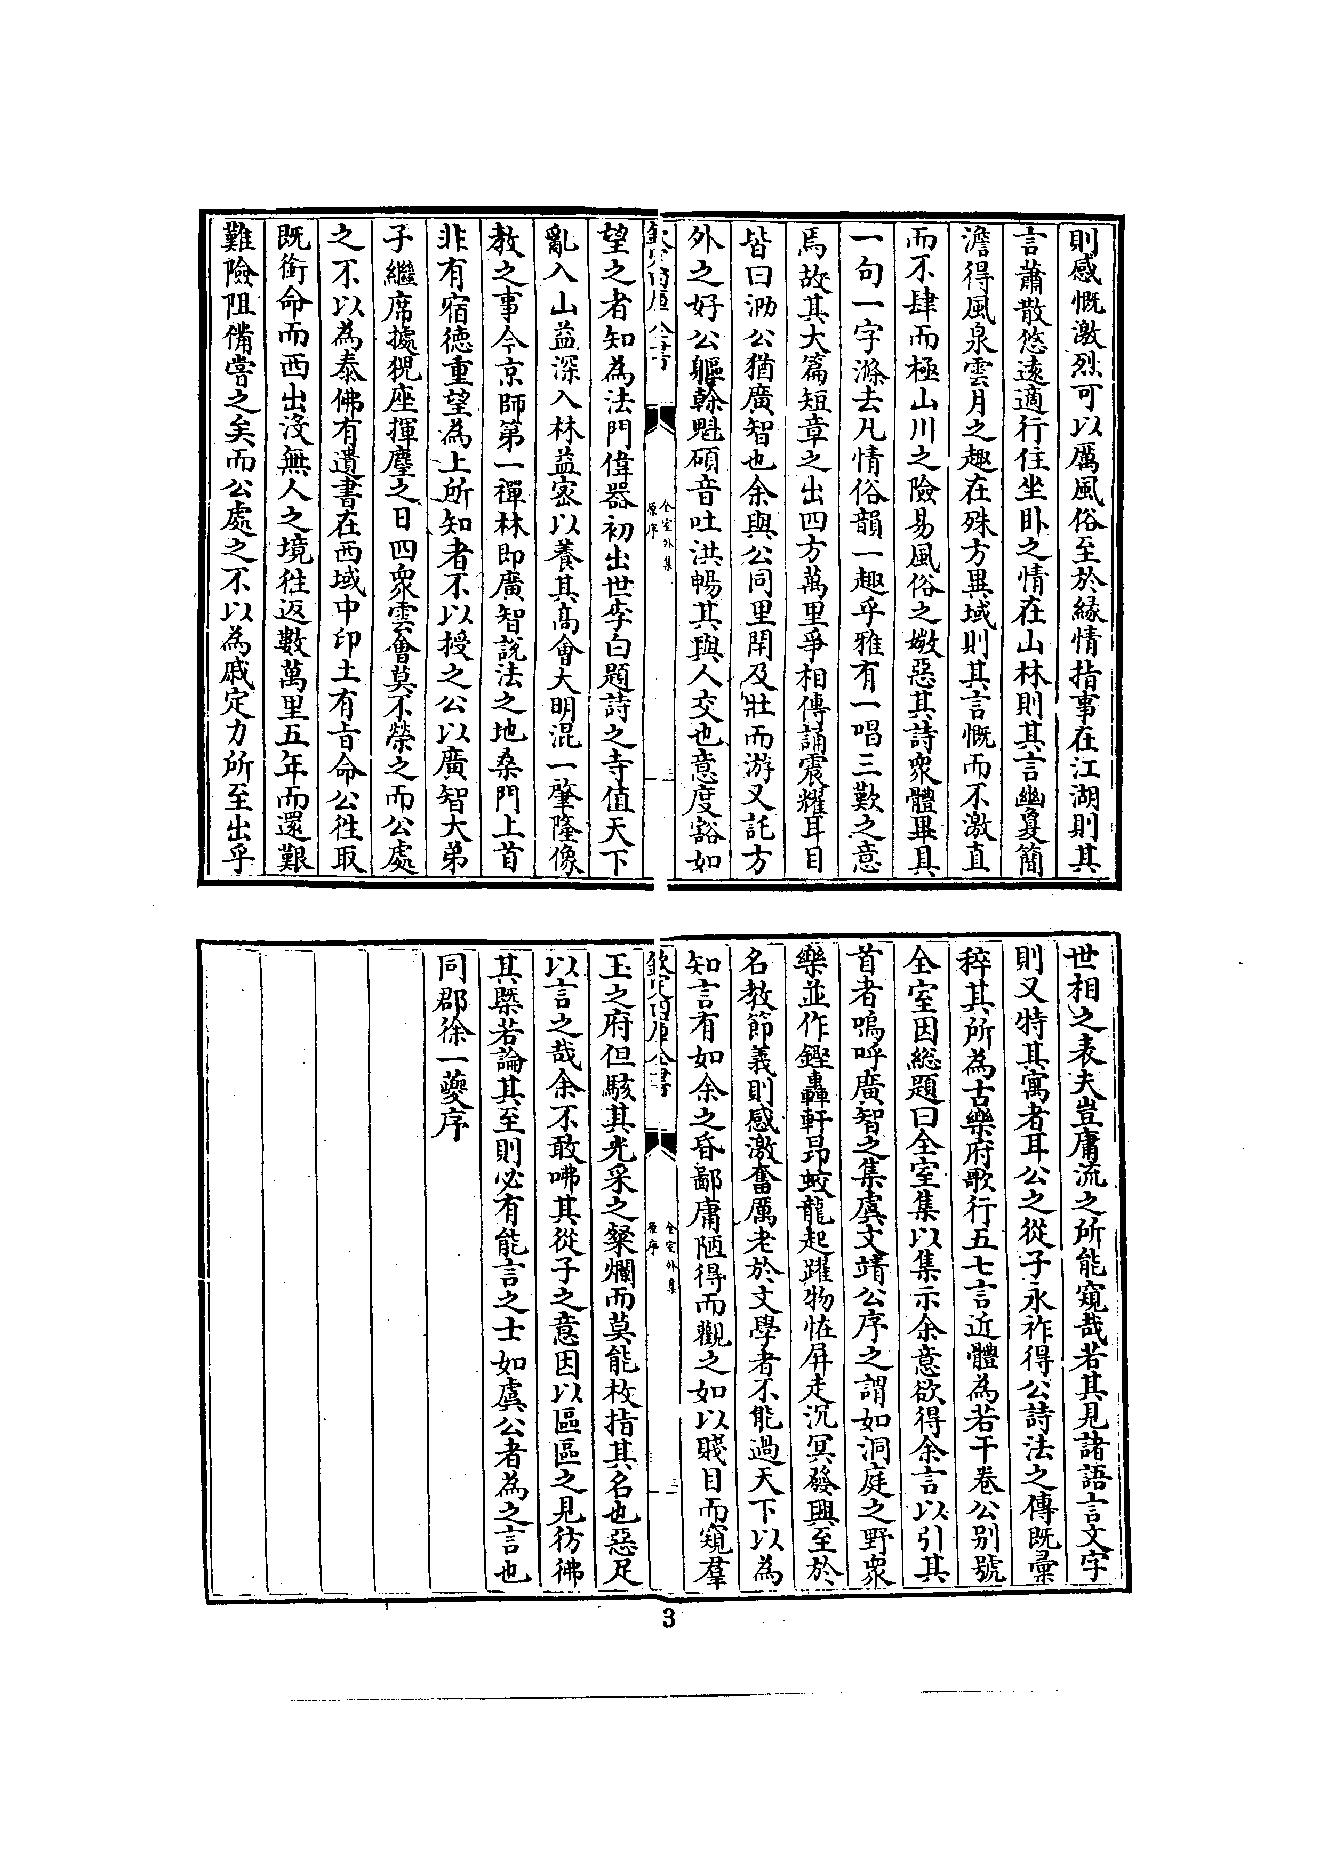 則感慨激烈可以厲風俗至於緣情指事在江湖則其
言蕭散悠遠適行住坐臥之情在山林則其言幽夐簡
澹得風泉雲月之趣在殊方異域則其言慨而不激直
而不肆而極山川之險易風俗之媺惡其詩衆體畢具
一句一字滌去凡情俗韻一趣乎雅有一唱三歎之意
焉故其大篇短章之出四方萬里爭相傳誦震耀耳目
皆曰泐公猶廣智也余與公同里閈及壯而游又託方
外之好公軀榦魁碩音吐洪暢其與人交也意度豁如
欽定四庫全書
全室外集
原序
二
望之者知為法門偉器初出世李白題詩之寺值天下
亂入山益深入林益密以養其高會大明混一肇隆像
教之事今京師第一禪林即廣智說法之地桑門上首
非有宿德重望為上所知者不以授之公以廣智大弟
子繼席據猊座揮麈之日四衆雲會莫不榮之而公處
之不以為泰佛有遺書在西域中印土有旨命公徃取
既銜命而西出沒無人之境徃返數萬里五年而還艱
難險阻備嘗之矣而公處之不以為戚定力所至出乎
世相之表夫豈庸流之所能窺哉若其見諸語言文字
則又特其寓者耳公之從子永祚得公詩法之傳既彙
稡其所為古樂府歌行五七言近體為若干卷公別號
全室因総題曰全室集以集示余意欲得余言以引其
首者嗚呼廣智之集虞文靖公序之謂如洞庭之野衆
樂並作鏗轟軒昻蛟龍起躍物恠屏走沉冥發興至於
名教節義則感激奮厲老於文學者不能過天下以為
知言有如余之昏鄙庸陋得而觀之如以賤目而窺羣
欽定四庫全書
全室外集
原序
三
玉之府但駭其光采之粲爛而莫能枚指其名也惡足
以言之哉余不敢咈其從子之意因以區區之見彷彿
其槩若論其至則必有能言之士如虞公者為之言也
同郡徐一夔序
3